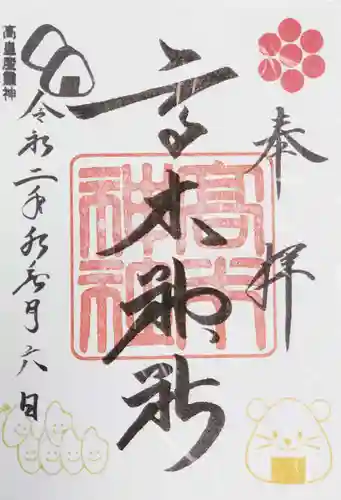 奉拝
高木神社
高木
神社
高皇産霊神
令和二年水無月六日